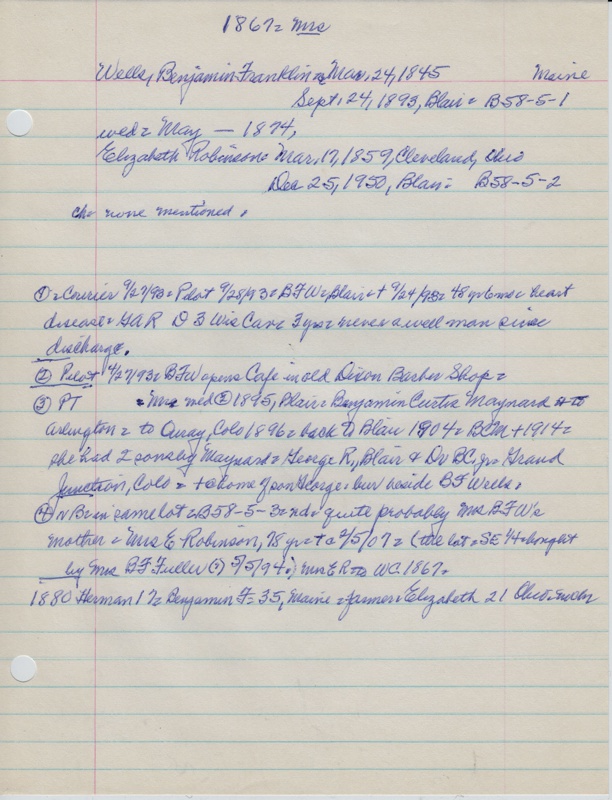 1867 = Mrs
Wells, Benjamin Franklin = Mar, 24, 1845 Maine
Sept, 24, 1893, Blair = B58-5-1
wed = May — 1874,
Elizabeth Robinson = Mar, 17, 1859, Cleveland, Ohio
Dec 25, 1950, Blair = B58-5-2
ch = none mentioned.
① = Courier 9/27/93 = Pilot 9/28/93 = BFW = Blair = + 9/24/93 = 48 yr 6 mo = heart
disease = GAR D 3 Wis Cav = 3 yrs = never a well man since
discharge.
② Pilot 4/27/93 = BFW opens Cafe in old Dixon Barber Shop =
③ PT = Mrs wed ② 1895, Blair = Benjamin Curtis Maynard = to
Arlington = to Ouray, Colo 1896 = back to Blair 1904 = BCM + 1914 =
she had 2 sons by Maynard = George R, Blair & Dr BC, Jr = Grand
Junction, Colo = + @ home of son George = bur beside BF Wells.
④ N Bur in same lot = B58-5-3 = nd = quite probably Mrs BFW's
mother = Mrs E Robinson, 78 yr = + 2/5/07 = (the lot = SE 1/4 = bought
by Mrs BF Fuller (?) 5/5/94.) Mrs ER to WC 1867 =
1880 Herman 17 = Benjamin F = 35, Maine = farmer = Elizabeth 21 Ohio =